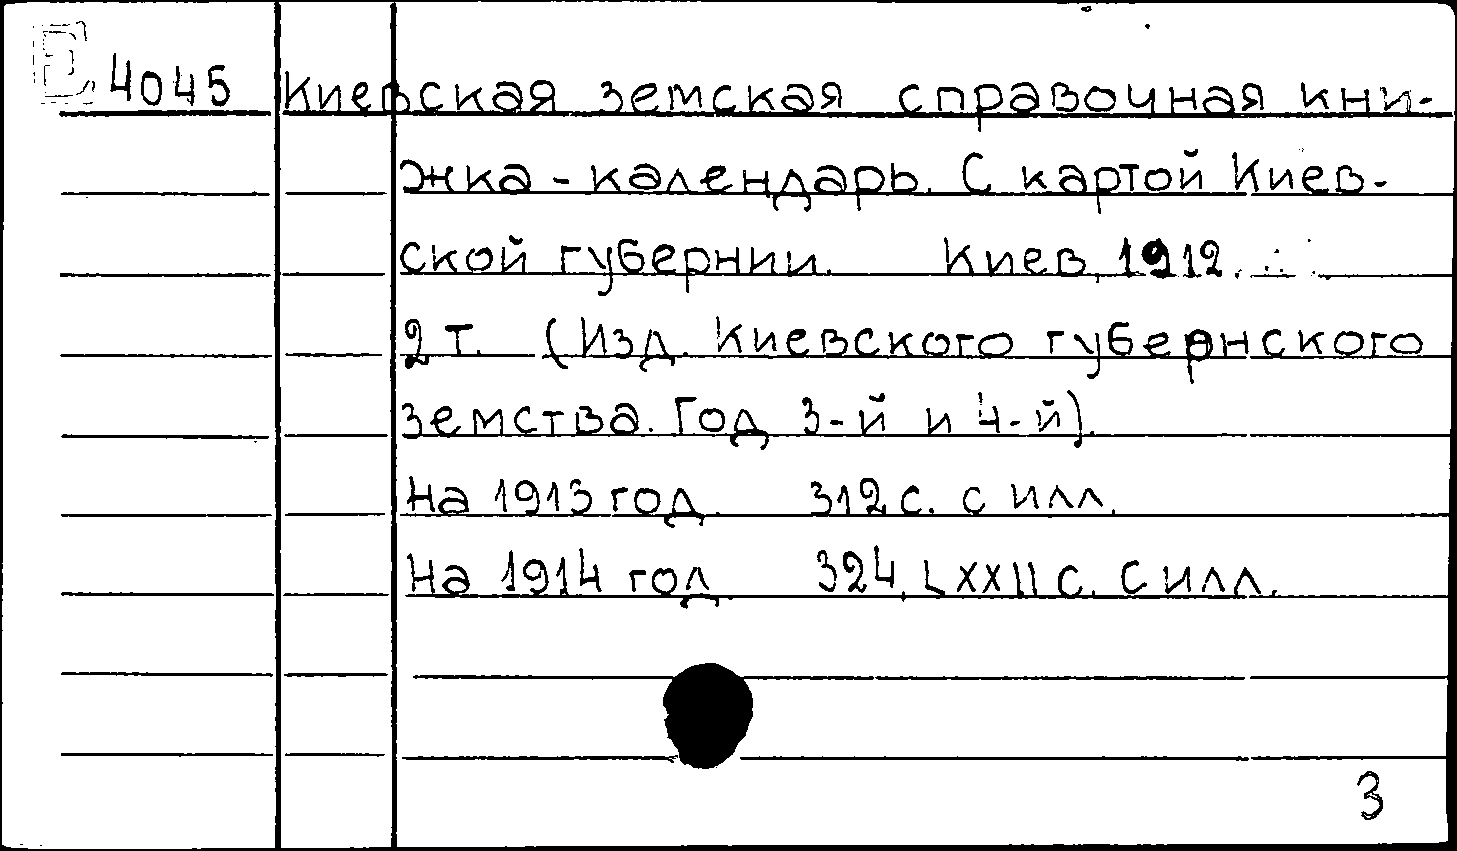 Е 4045 Киевская земская справочная кни-
жка - календарь. С картой Киев-
ской губернии. Киев, 1912.
2 т. (Изд. Киевского губернского
земства. Год 3-й и 4-й).
На 1913 год. 312 с. с илл.
На 1914 год. 324, LXXII с. с илл.
3